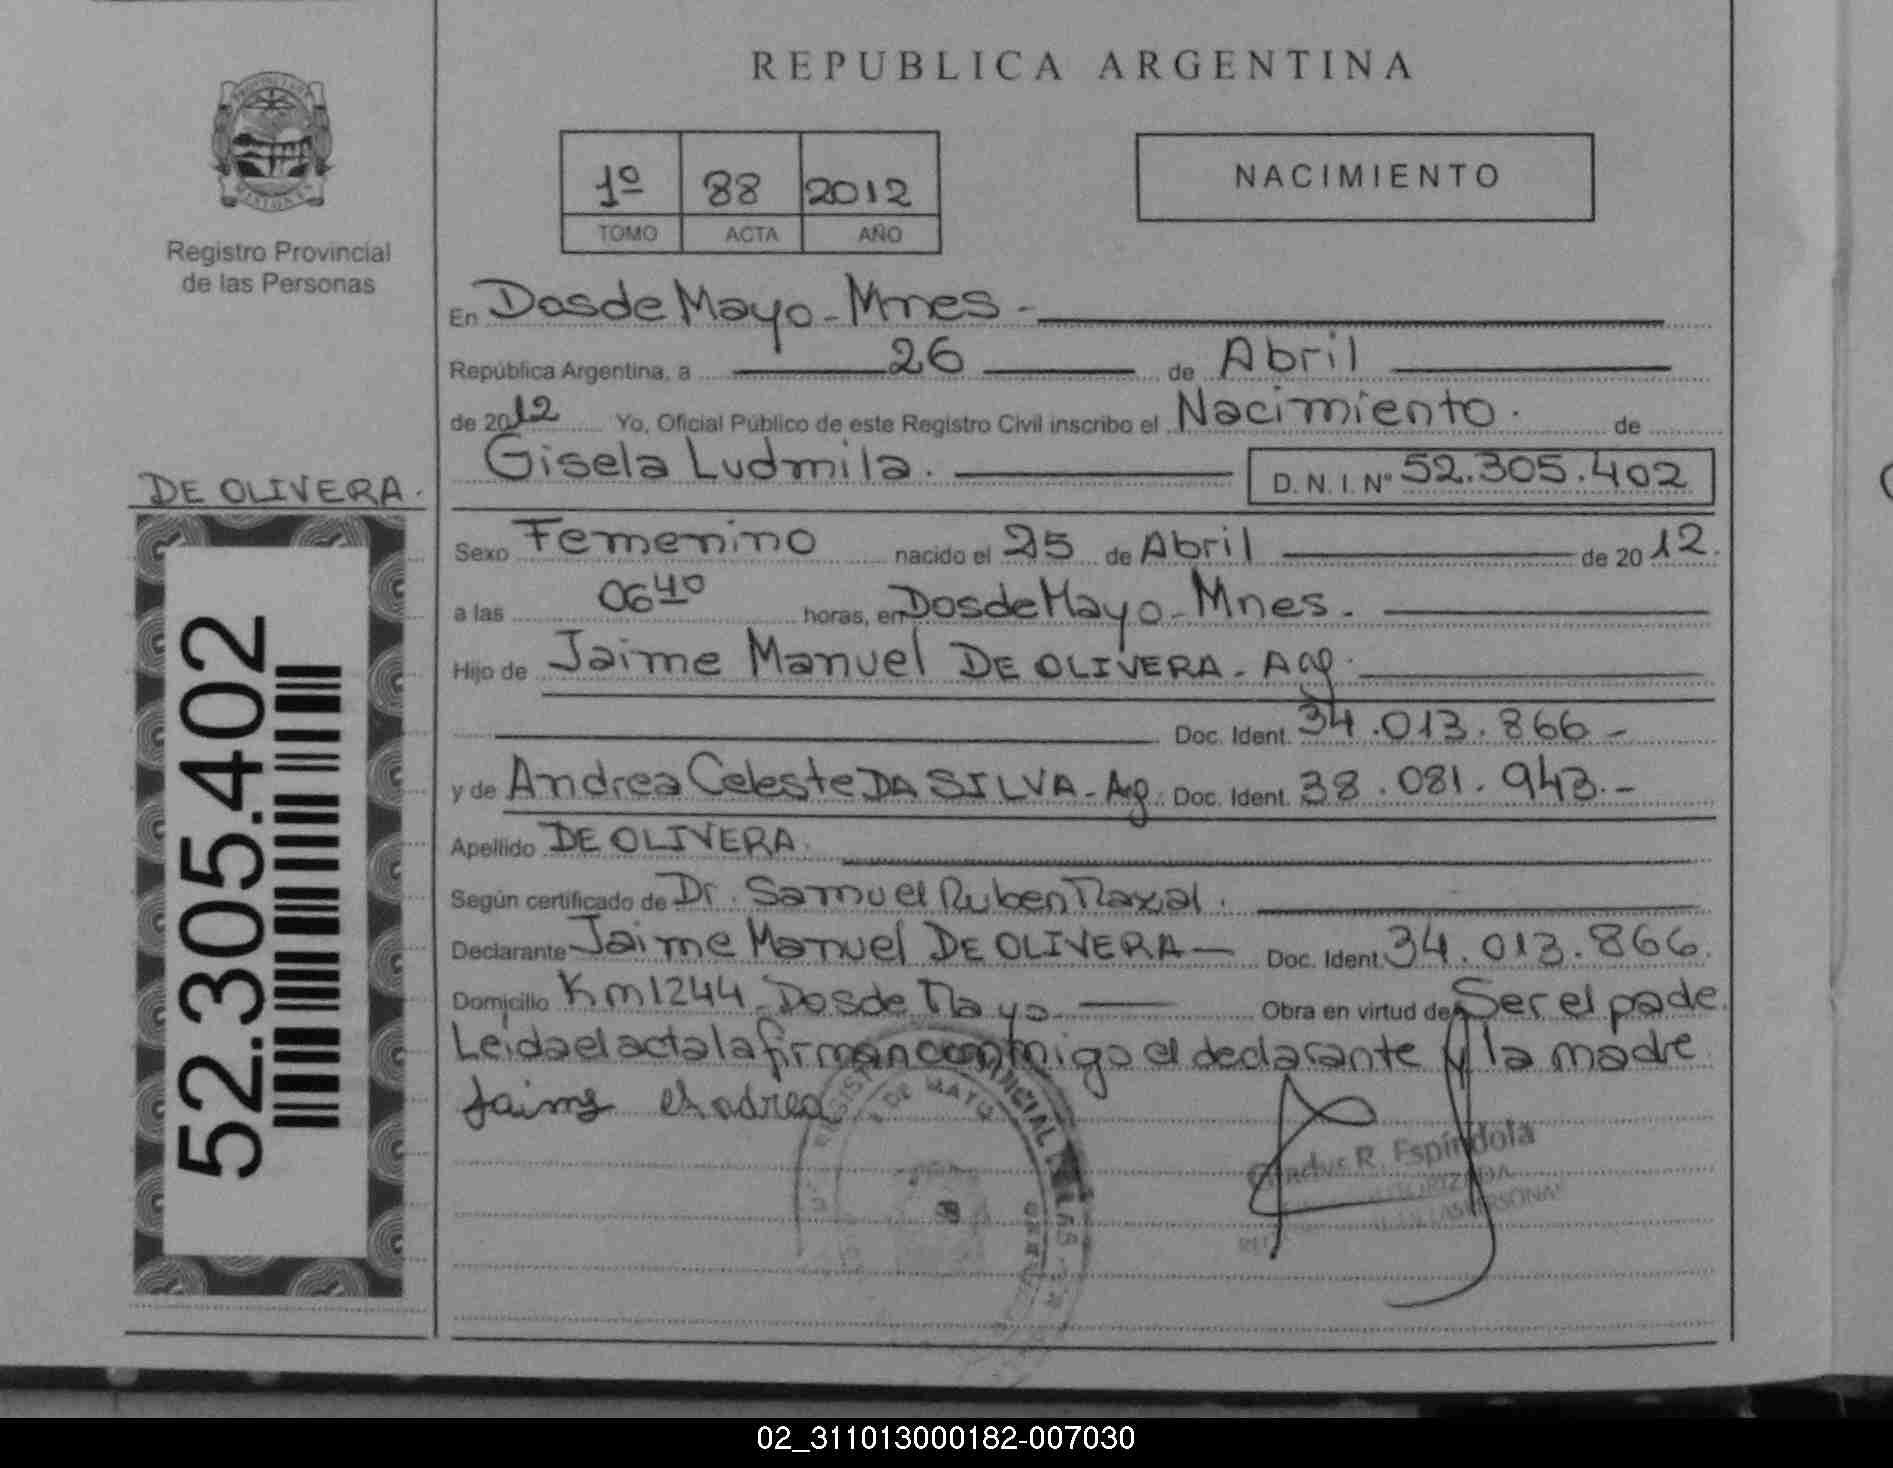 REPUBLICA ARGENTINA
PROVINCIA DE MISIONES
Registro Provincial
de las Personas
1º 88 2012
TOMO ACTA AÑO
NACIMIENTO
En Dos de Mayo - Mnes -
República Argentina, a 26 de Abril
de 2012 Yo, Oficial Público de este Registro Civil inscribo el Nacimiento. de
Gisela Ludmila. D.N.I. Nº 52.305.402
DE OLIVERA.
52.305.402
Sexo Femenino nacido el 25 de Abril de 2012.
a las 06 40 horas, en Dos de Mayo - Mnes.
Hijo de Jaime Manuel DE OLIVERA - Arg.
Doc. Ident. 34.013.866 -
y de Andrea Celeste DA SILVA - Arg. Doc. Ident. 38.081.943.-
Apellido DE OLIVERA.
Según certificado de Dr. Samuel Ruben
Declarante Jaime Manuel DE OLIVERA - Doc. Ident. 34.013.866.
Domicilio Km 1244 - Dos de Mayo Obra en virtud de Ser el padre.
Leida el acta la firman conmigo el declarante y la madre
Jaime Andrea
DE MAYO
R. Espíndola
02_311013000182-007030